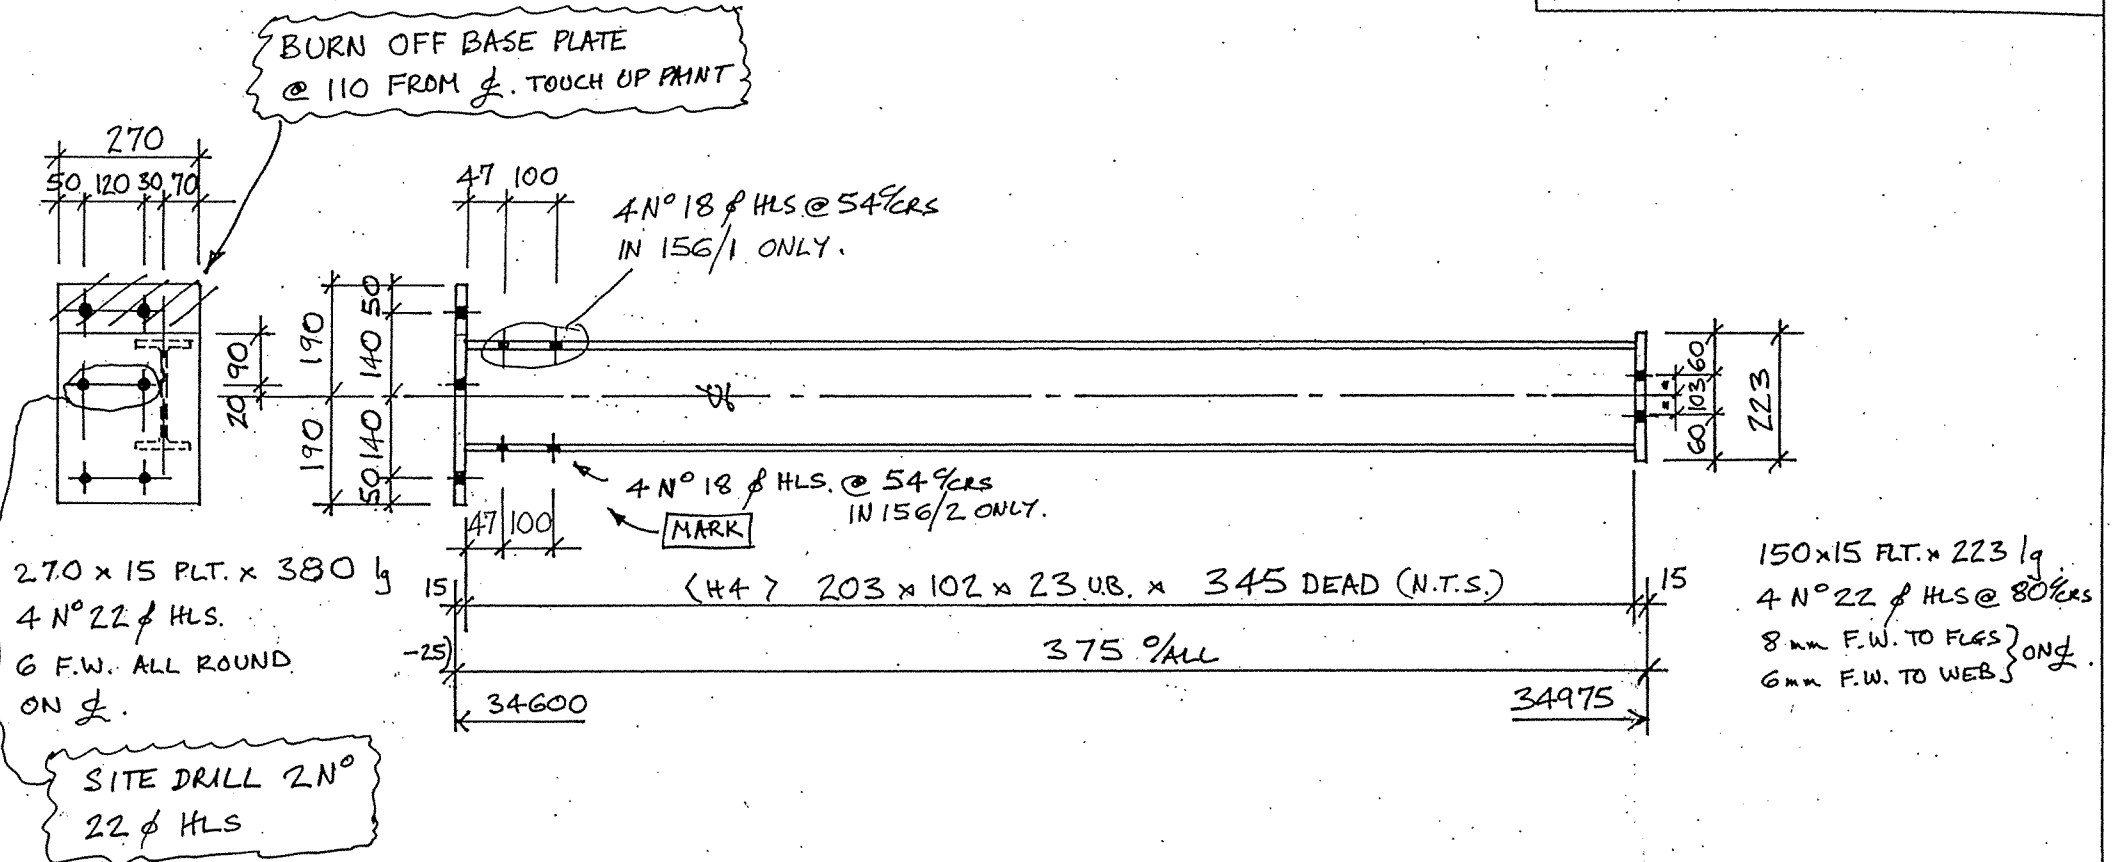 BURN OFF BASE PLATE
@ 110 FROM ℄. TOUCH UP PAINT
270
50 120 30 70
47 100
4 Nº 18 ∅ HLS @ 54 c/CRS
IN 156/1 ONLY.
90
20
190
190
50
140
140
50
60
103
60
223
4 Nº 18 ∅ HLS. @ 54 c/CRS
IN 156/2 ONLY.
MARK
47 100
270 x 15 PLT. x 380 lg
4 Nº 22 ∅ HLS.
6 F.W. ALL ROUND
ON ℄.
15
<H4> 203 x 102 x 23 U.B. x 345 DEAD (N.T.S.)
15
-25)
375 O/ALL
34600
34975
150 x 15 FLT. x 223 lg.
4 Nº 22 ∅ HLS @ 80 c/CRS
8 mm F.W. TO FLGS } ON ℄.
6 mm F.W. TO WEB
SITE DRILL 2 Nº
22 ∅ HLS